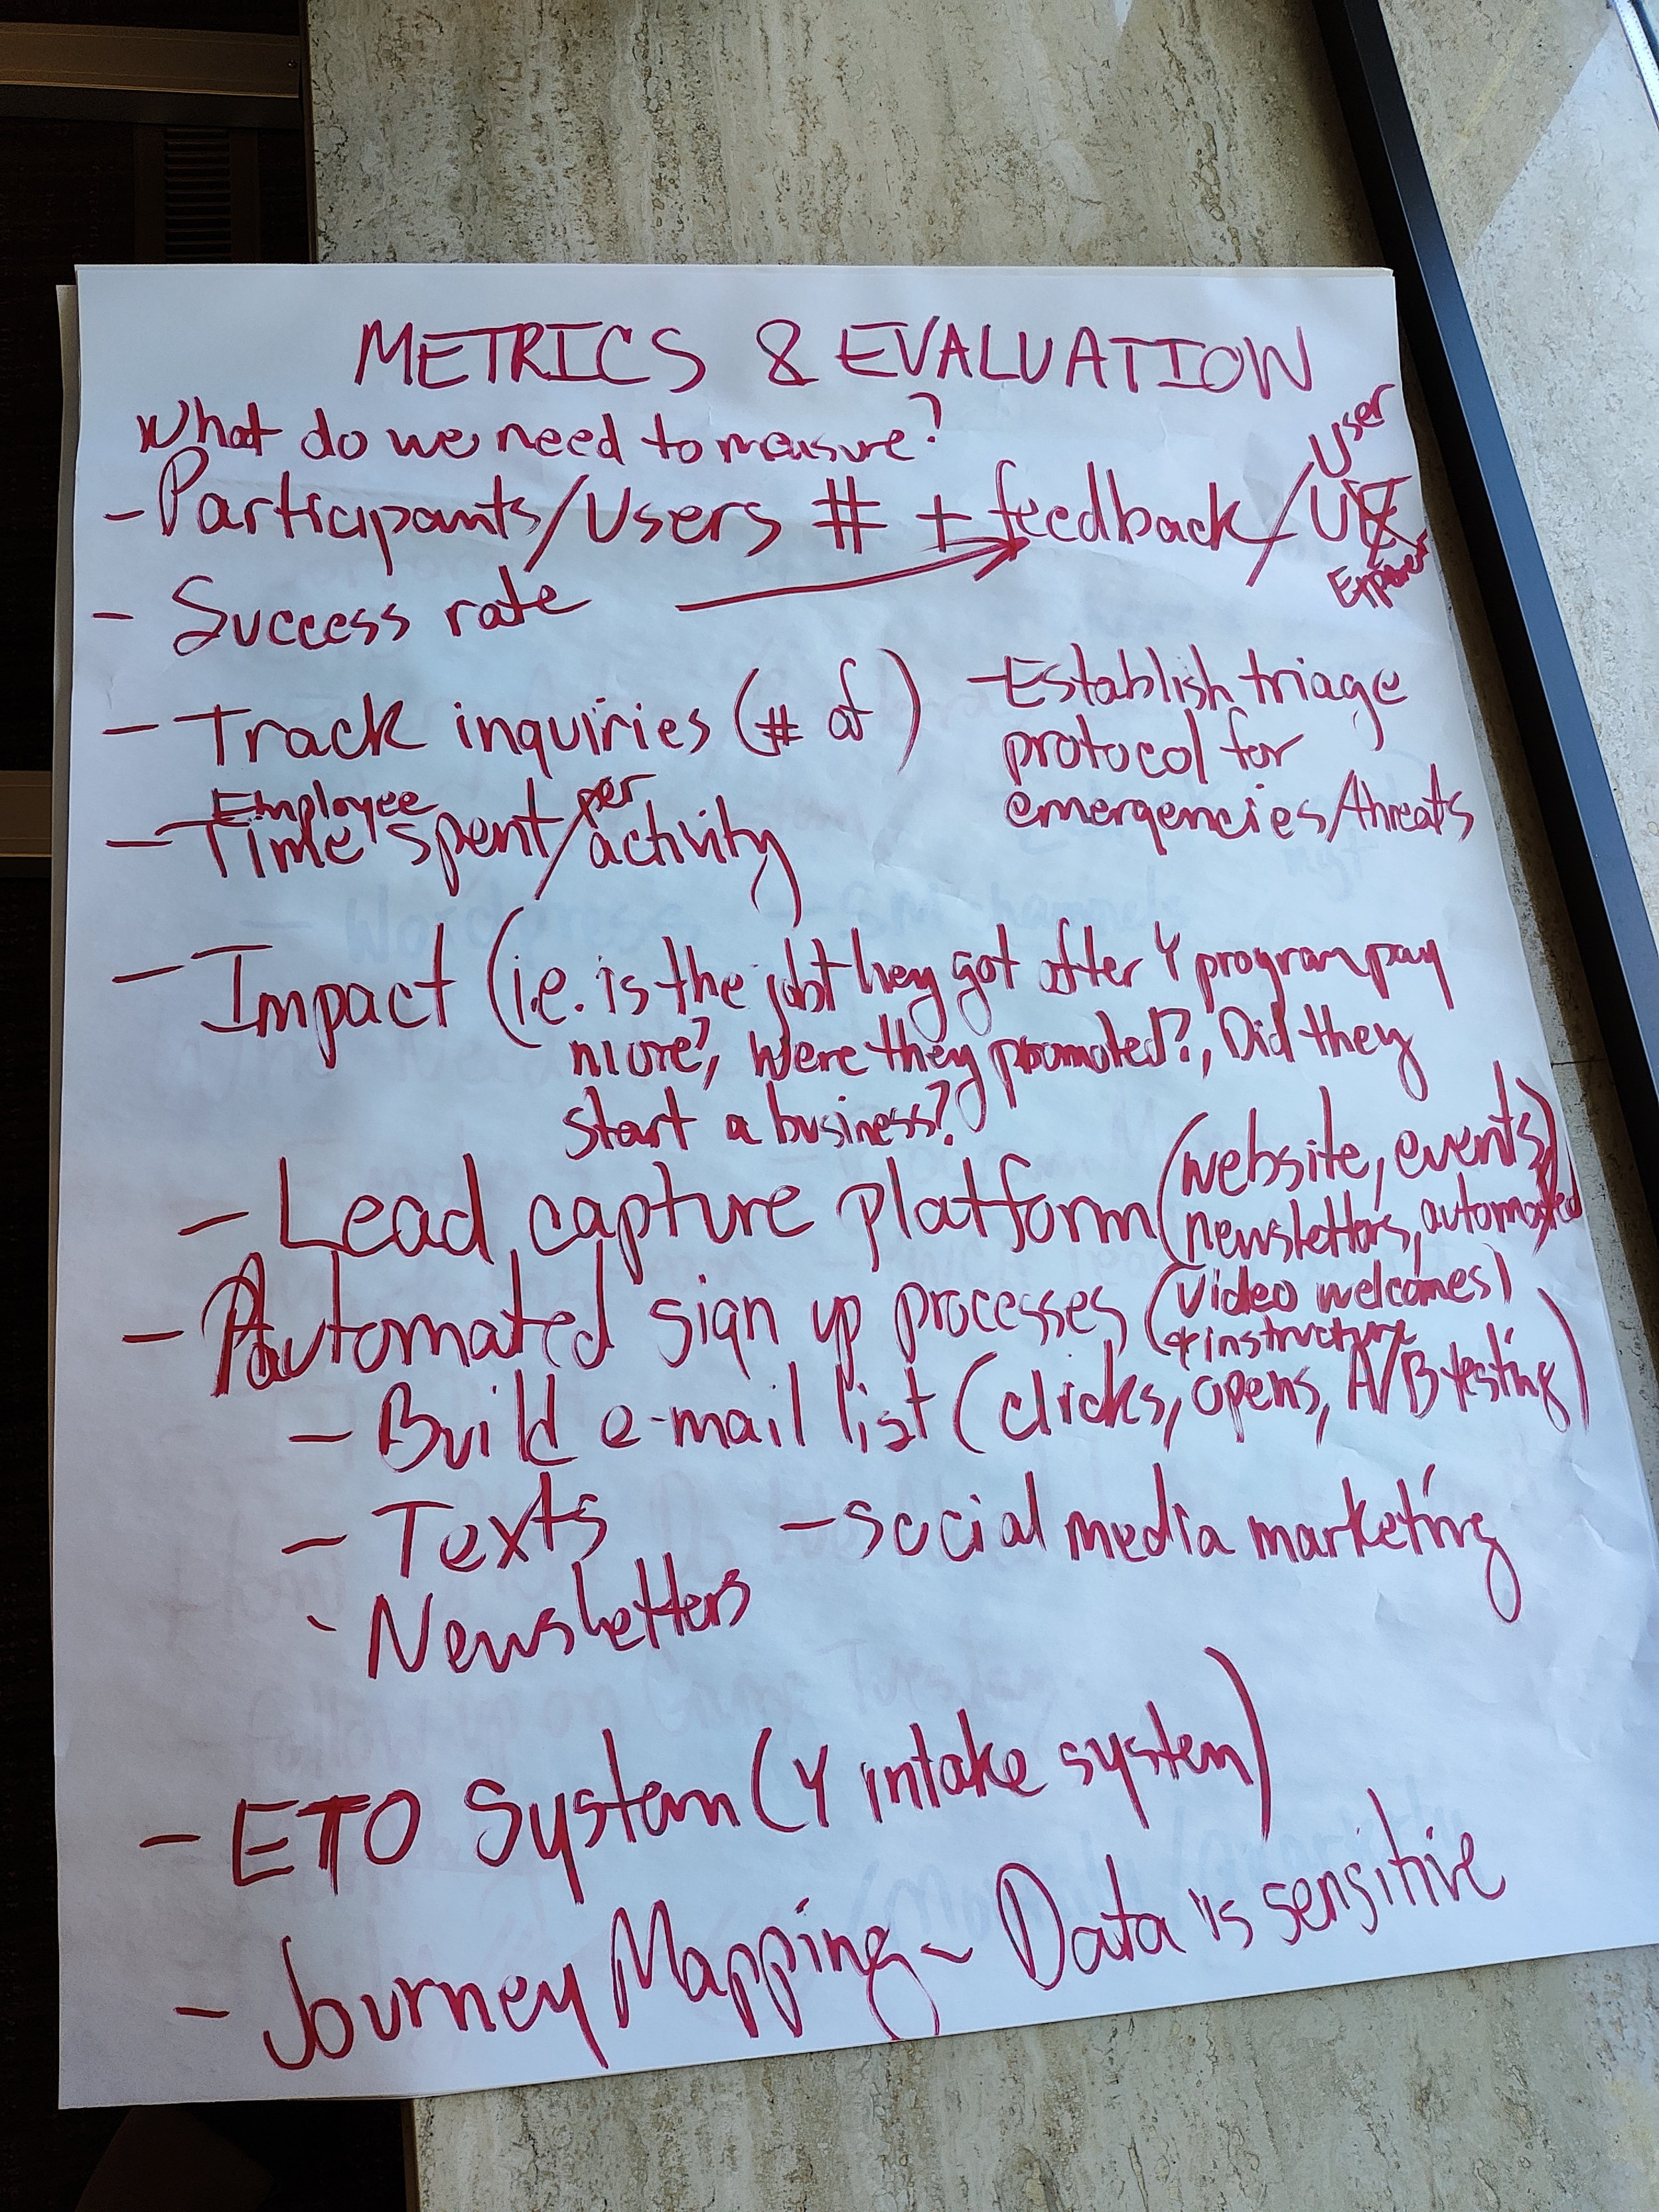 METRICS & EVALUATION
What do we need to measure?
- Participants/Users # + feedback/User UX
- Success rate
- Track inquiries (# of)
- Establish triage
protocol for
emergencies/threats
- Employee Time spent/per activity
- Impact (i.e. is the job they got after Y program pay
more?, Were they promoted?, Did they
start a business?
- Lead capture platform (website, events,
newsletters, automated
- Automated sign up processes (video welcomes)
- Build e-mail list (clicks, opens, A/B testing)
- Texts - Social media marketing
- Newsletters
- ETO System (Y intake system)
- Journey Mapping ~ Data is sensitive